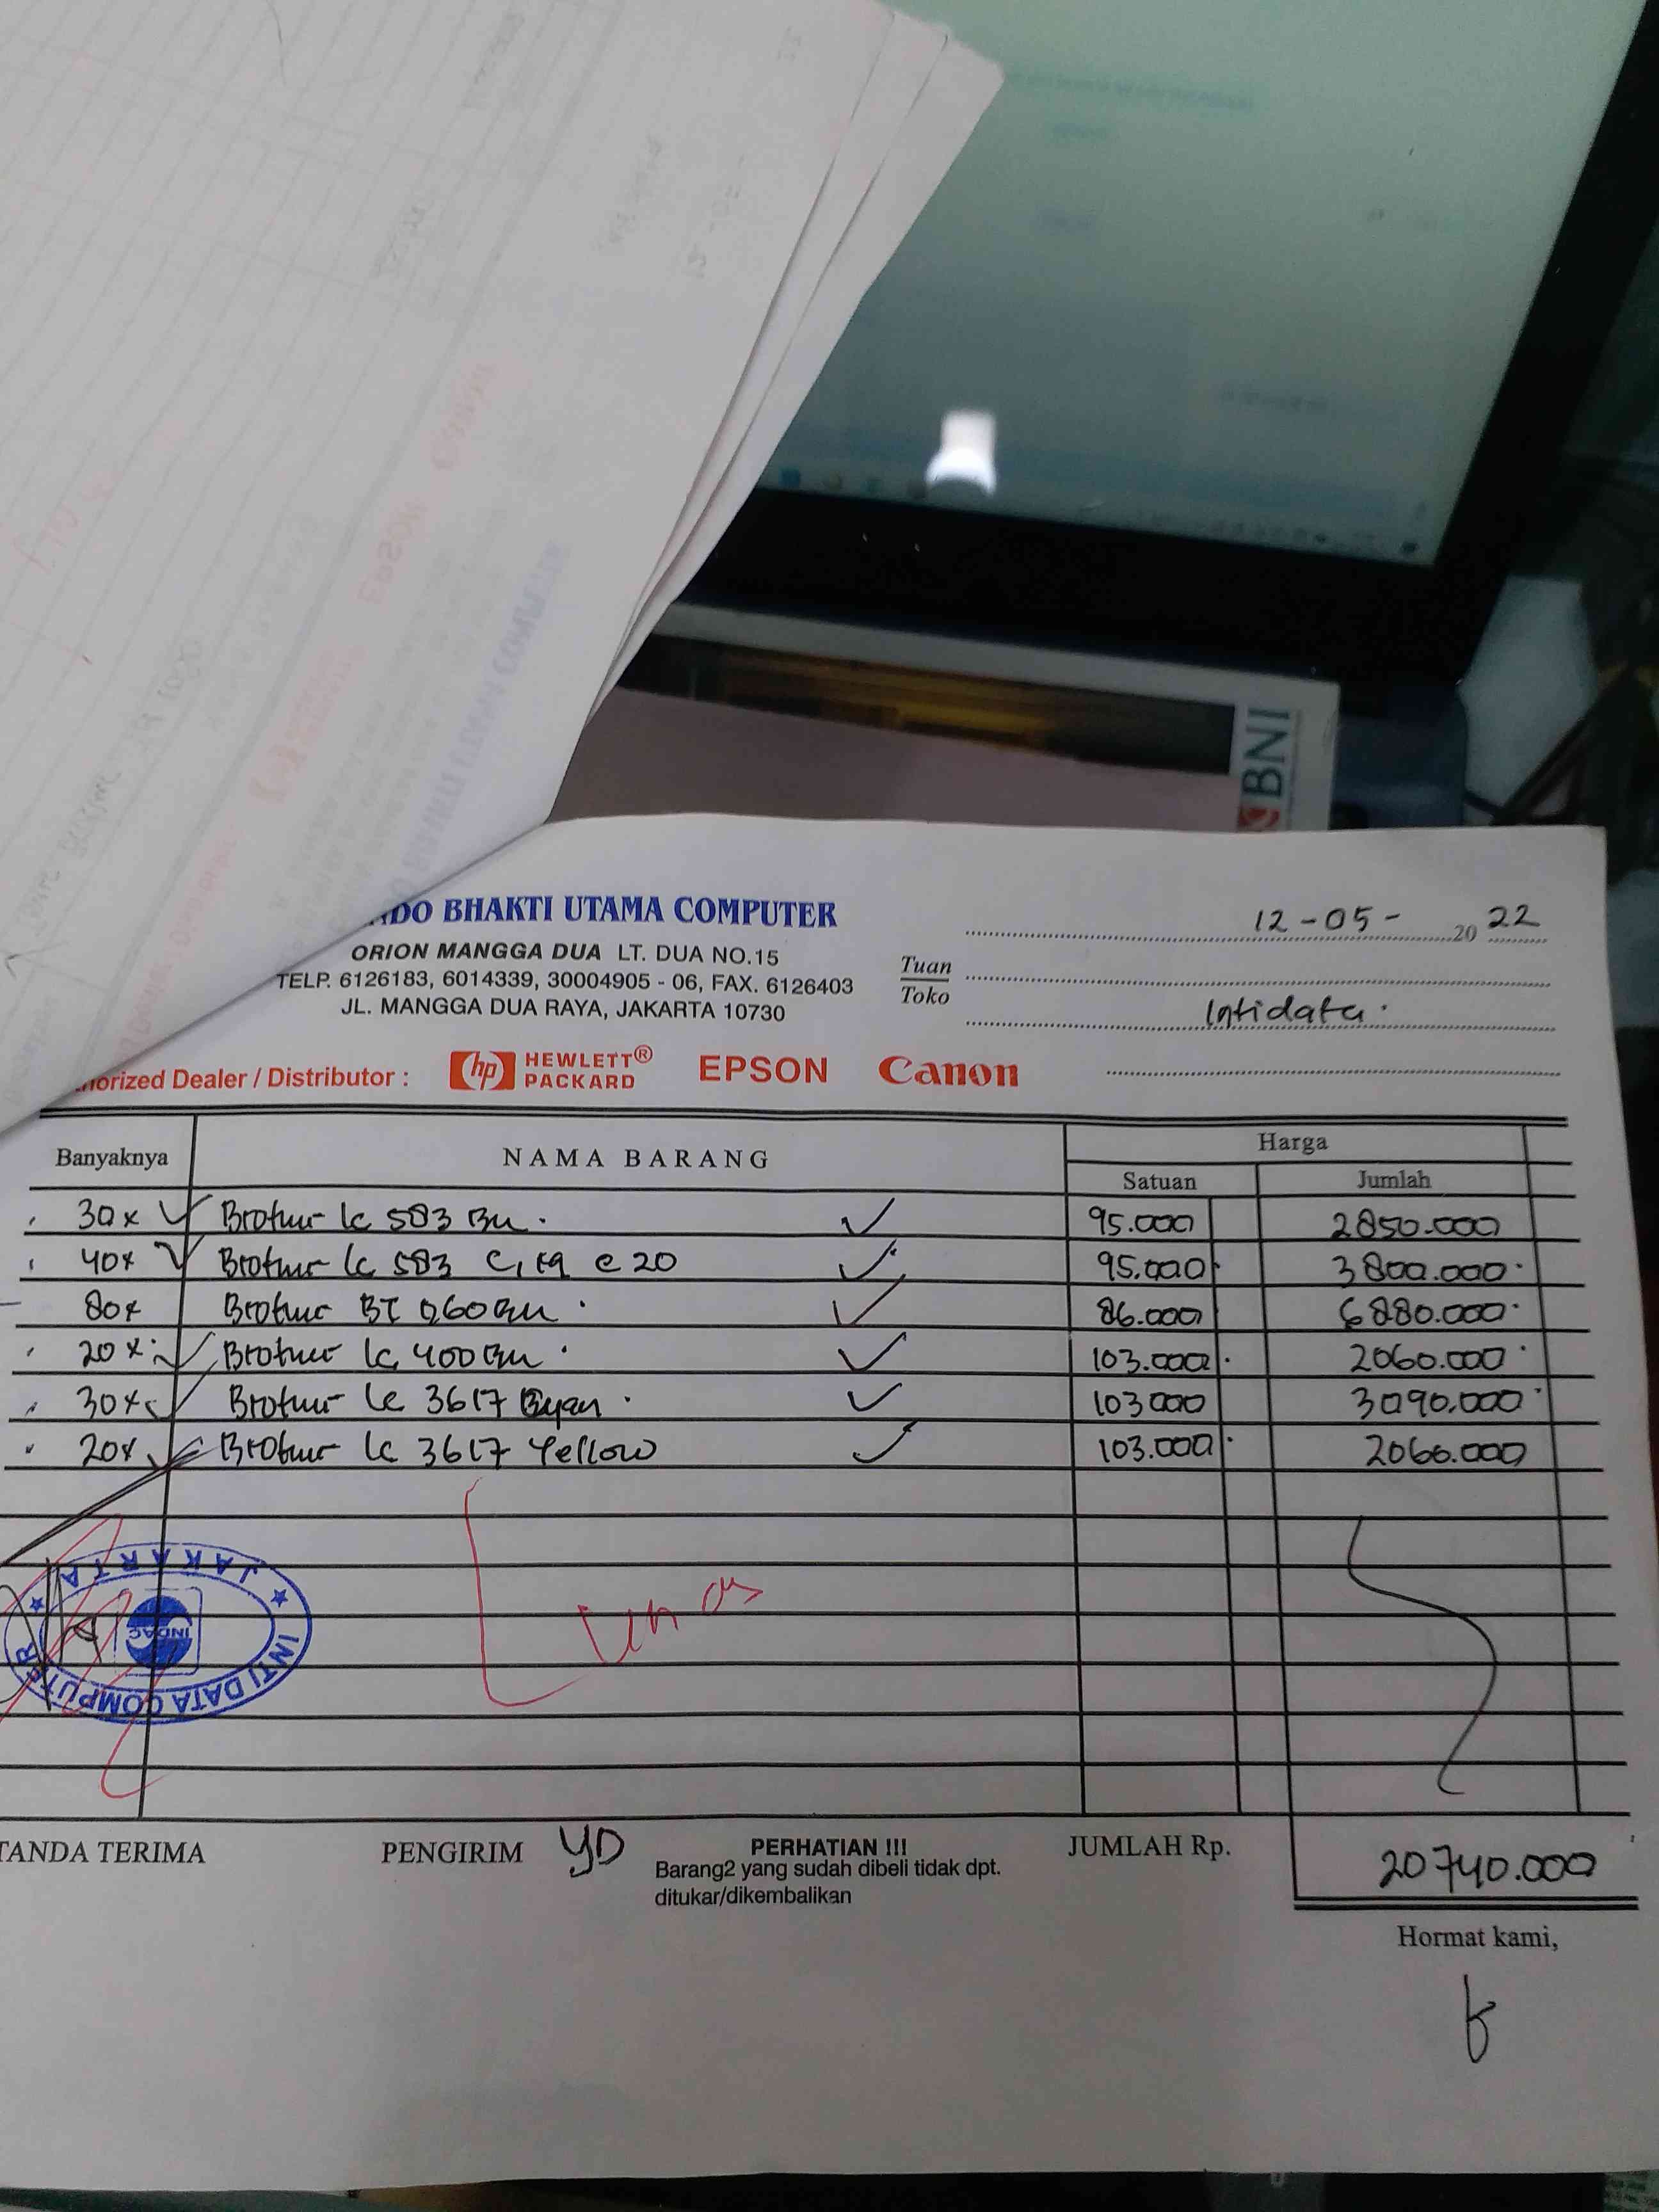 BNI
DO BHAKTI UTAMA COMPUTER
ORION MANGGA DUA LT. DUA NO.15
TELP. 6126183, 6014339, 30004905 - 06, FAX. 6126403
JL. MANGGA DUA RAYA, JAKARTA 10730
12-05- 20 22
Tuan
Toko
Intidata.
orized Dealer / Distributor : hp HEWLETT® PACKARD EPSON Canon
Banyaknya NAMA BARANG Harga
Satuan Jumlah
30x Brother lc 583 95.000 2850.000
40x Brother lc 583 e 20 95.000 3800.000
80x Brother BT 86.000 6880.000
20x Brother lc 400 103.000 2060.000
30x Brother lc 3617 103.000 3090.000
20x Brother lc 3617 Yellow 103.000 2060.000
Lunas
INTI DATA COMPUTER
JAKARTA
INDAC
TANDA TERIMA PENGIRIM YD PERHATIAN !!! JUMLAH Rp. 20740.000
Barang2 yang sudah dibeli tidak dpt.
ditukar/dikembalikan
Hormat kami,